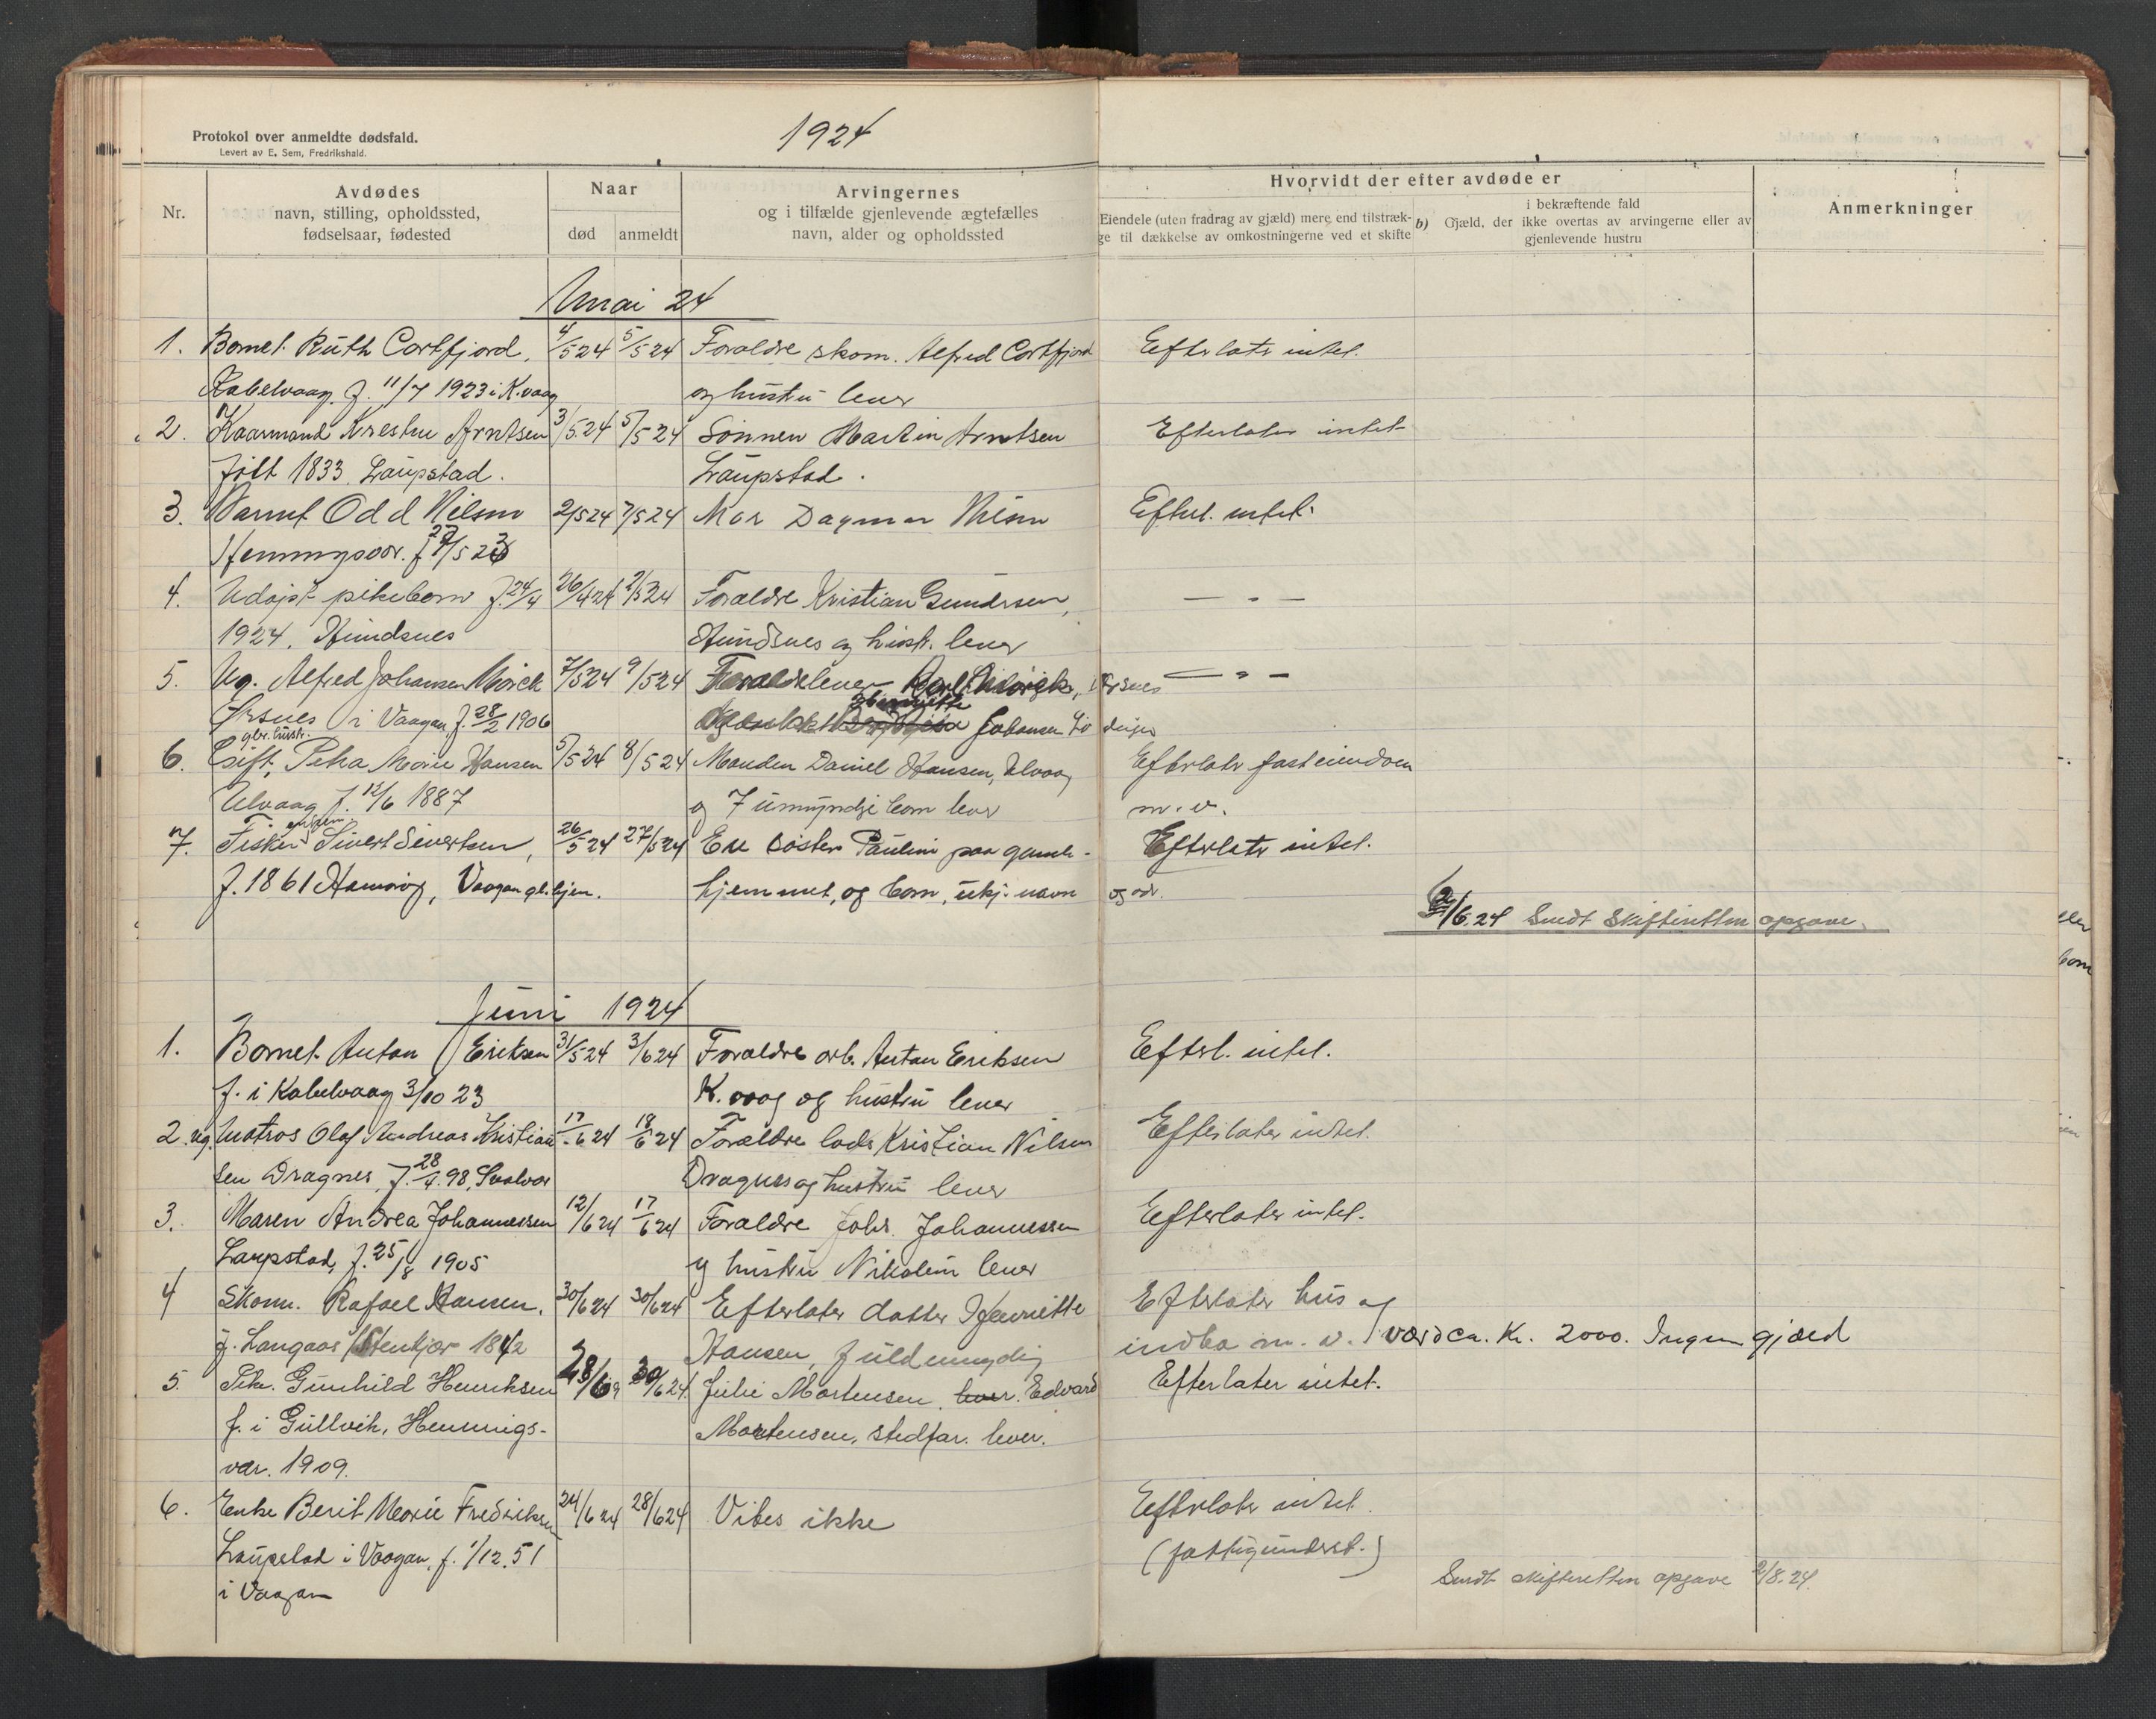 Protokol over anmeldte dødsfald.
Levert av E. Sem, Fredrikshald.
1924
Nr.
Avdødes
navn, stilling, opholdssted,
fødselsaar, fødested
Naar
død
anmeldt
Arvingernes
og i tilfælde gjenlevende ægtefælles
navn, alder og opholdssted
Hvorvidt der efter avdøde er
Eiendele (uten fradrag av gjæld) mere end tilstræk-
ge til dækkelse av omkostningerne ved et skifte
b)
i bekræftende fald
Gjæld, der ikke overtas av arvingerne eller av
gjenlevende hustru
Anmerkninger
Mai 24
1. Barnet Ruth Cortfjord, 4/5 24 5/5 24 Forældre skom. Alfred Cortfjord Efterlater intet.
Kabelvaag f. 11/7 1923 i K.vaag og hustru lever
2. Kaarmand Arntsen 3/5 24 5/5 24 Sønnen Martin Arntsen Efterlater intet
født 1833. Laupstad. Laupstad.
3. Barnet Odd Nilsen 2/5 24 7/5 24 Mor Dagmar Nilsen Efterl. intet.
Henningsvær. f 27/5 23
4. Udøpt pikebarn f. 24/4 26/4 24 2/5 24 Forældre Kristian Gundersen, — " —
1924. Hundsnes Hundsnes og hustr. lever
5. Ug. Alfred Johansen Mörck 7/5 24 9/5 24 Forældre lever Karl Mörck, Ørsnes — " —
Ørsnes i Vaagan f. 28/2 1906 Henriette Johansen
gbr. hustr.
6. Gift, Petra Marie Hansen 5/5 24 8/5 24 Manden Daniel Hansen, Ulvaag Efterlater fast eiendom
Ulvaag f. 12/6 1887 og 7 umyndige barn lever m. v.
7. Fisker Sivert Sivertsen, 26/5 24 27/5 24 En søster Pauline paa gamle- Efterlater intet.
f. 1861 Vaagan gl.hjem. hjemmet, og barn, ukj. navn og adr.
2/6.24 Sendt Skifteretten opgave
Juni 1924
1. Barnet Anton Eriksen 31/5 24 3/6 24 Forældre arb. Anton Eriksen Efterl. intet.
f. i Kabelvaag 3/10 23 K.vaag og hustru lever
2. ug. Matros Olaf Andreas Kristian- 17/6 24 18/6 24 Forældre lods Kristian Nilsen Efterlater intet.
sen Dragnes, f. 28/4. 98, Svolvær Dragnes og hustru lever
3. Maren Andrea Johannessen 12/6 24 17/6 24 Forældre Johs. Johannessen Efterlater intet.
Laupstad, f. 25/8 1905 og hustru Nikoline lever
4 Skom. Rafael Hansen, 30/6 24 30/6 24 Efterlater datter Henriette Efterlater hus og
f. Langaas Stenkjær 1842 Hansen, fuldmyndig indbo m. v. værd ca. Kr. 2000. Ingen gjæld
5. Pike Gunhild Henriksen 28/6 30/6 24 Julie Mortensen, lever. Edvard Efterlater intet.
f. i Gullvik, Hennings- Mortensen, stedfar. lever.
vær. 1909.
6. Enke Berit Marie Fredriksen 24/6 24 28/6 24 Vites ikke Efterlater intet.
Laupstad i Vaagan, f. 1/12. 51 (fattigunderst.)
i Vaagan
Sendt skifteretten opgave 2/8. 24.